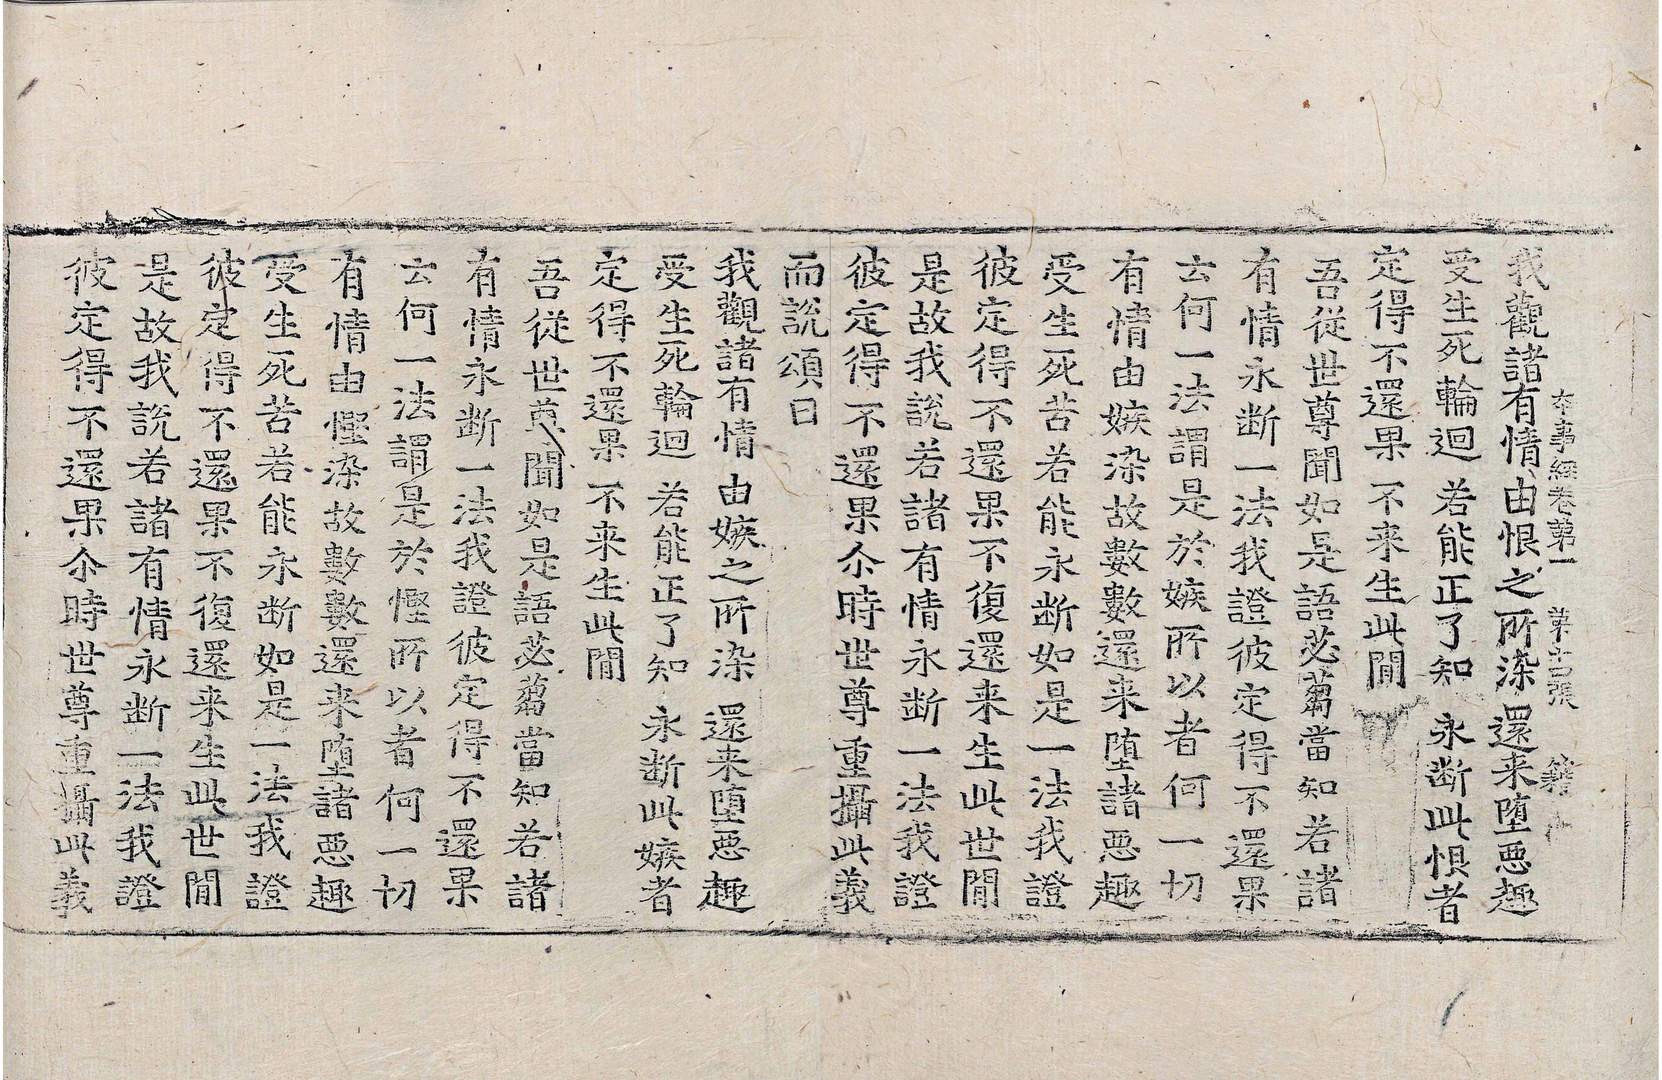 本事經卷第一 第十四張 籍
我觀諸有情由恨之所染還来堕惡趣
受生死輪迴若能正了知永断此恨者
定得不還果不来生此閒
吾從世尊聞如是語苾蒭當知若諸
有情永断一法我證彼定得不還果
云何一法謂是於嫉所以者何一切
有情由嫉染故數數還来堕諸惡趣
受生死苦若能永断如是一法我證
彼定得不還果不復還来生此世閒
是故我說若諸有情永断一法我證
彼定得不還果尒時世尊重攝此義
而說頌曰
我觀諸有情由嫉之所染還来堕惡趣
受生死輪迴若能正了知永断此嫉者
定得不還果不来生此閒
吾從世尊聞如是語苾蒭當知若諸
有情永断一法我證彼定得不還果
云何一法謂是於慳所以者何一切
有情由慳染故數數還来堕諸惡趣
受生死苦若能永断如是一法我證
彼定得不還果不復還来生此世閒
是故我說若諸有情永断一法我證
彼定得不還果尒時世尊重攝此義